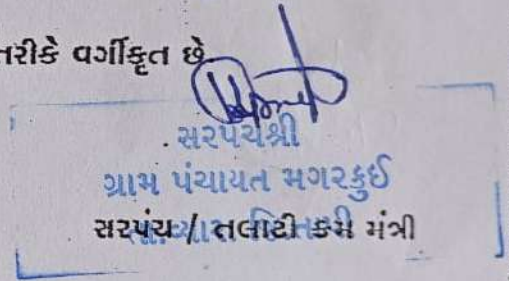 તરીકે વર્ગીકૃત છે
સરપંચશ્રી
ગ્રામ પંચાયત મગરકુઈ
સરપંચ / તલાટી કમ મંત્રી